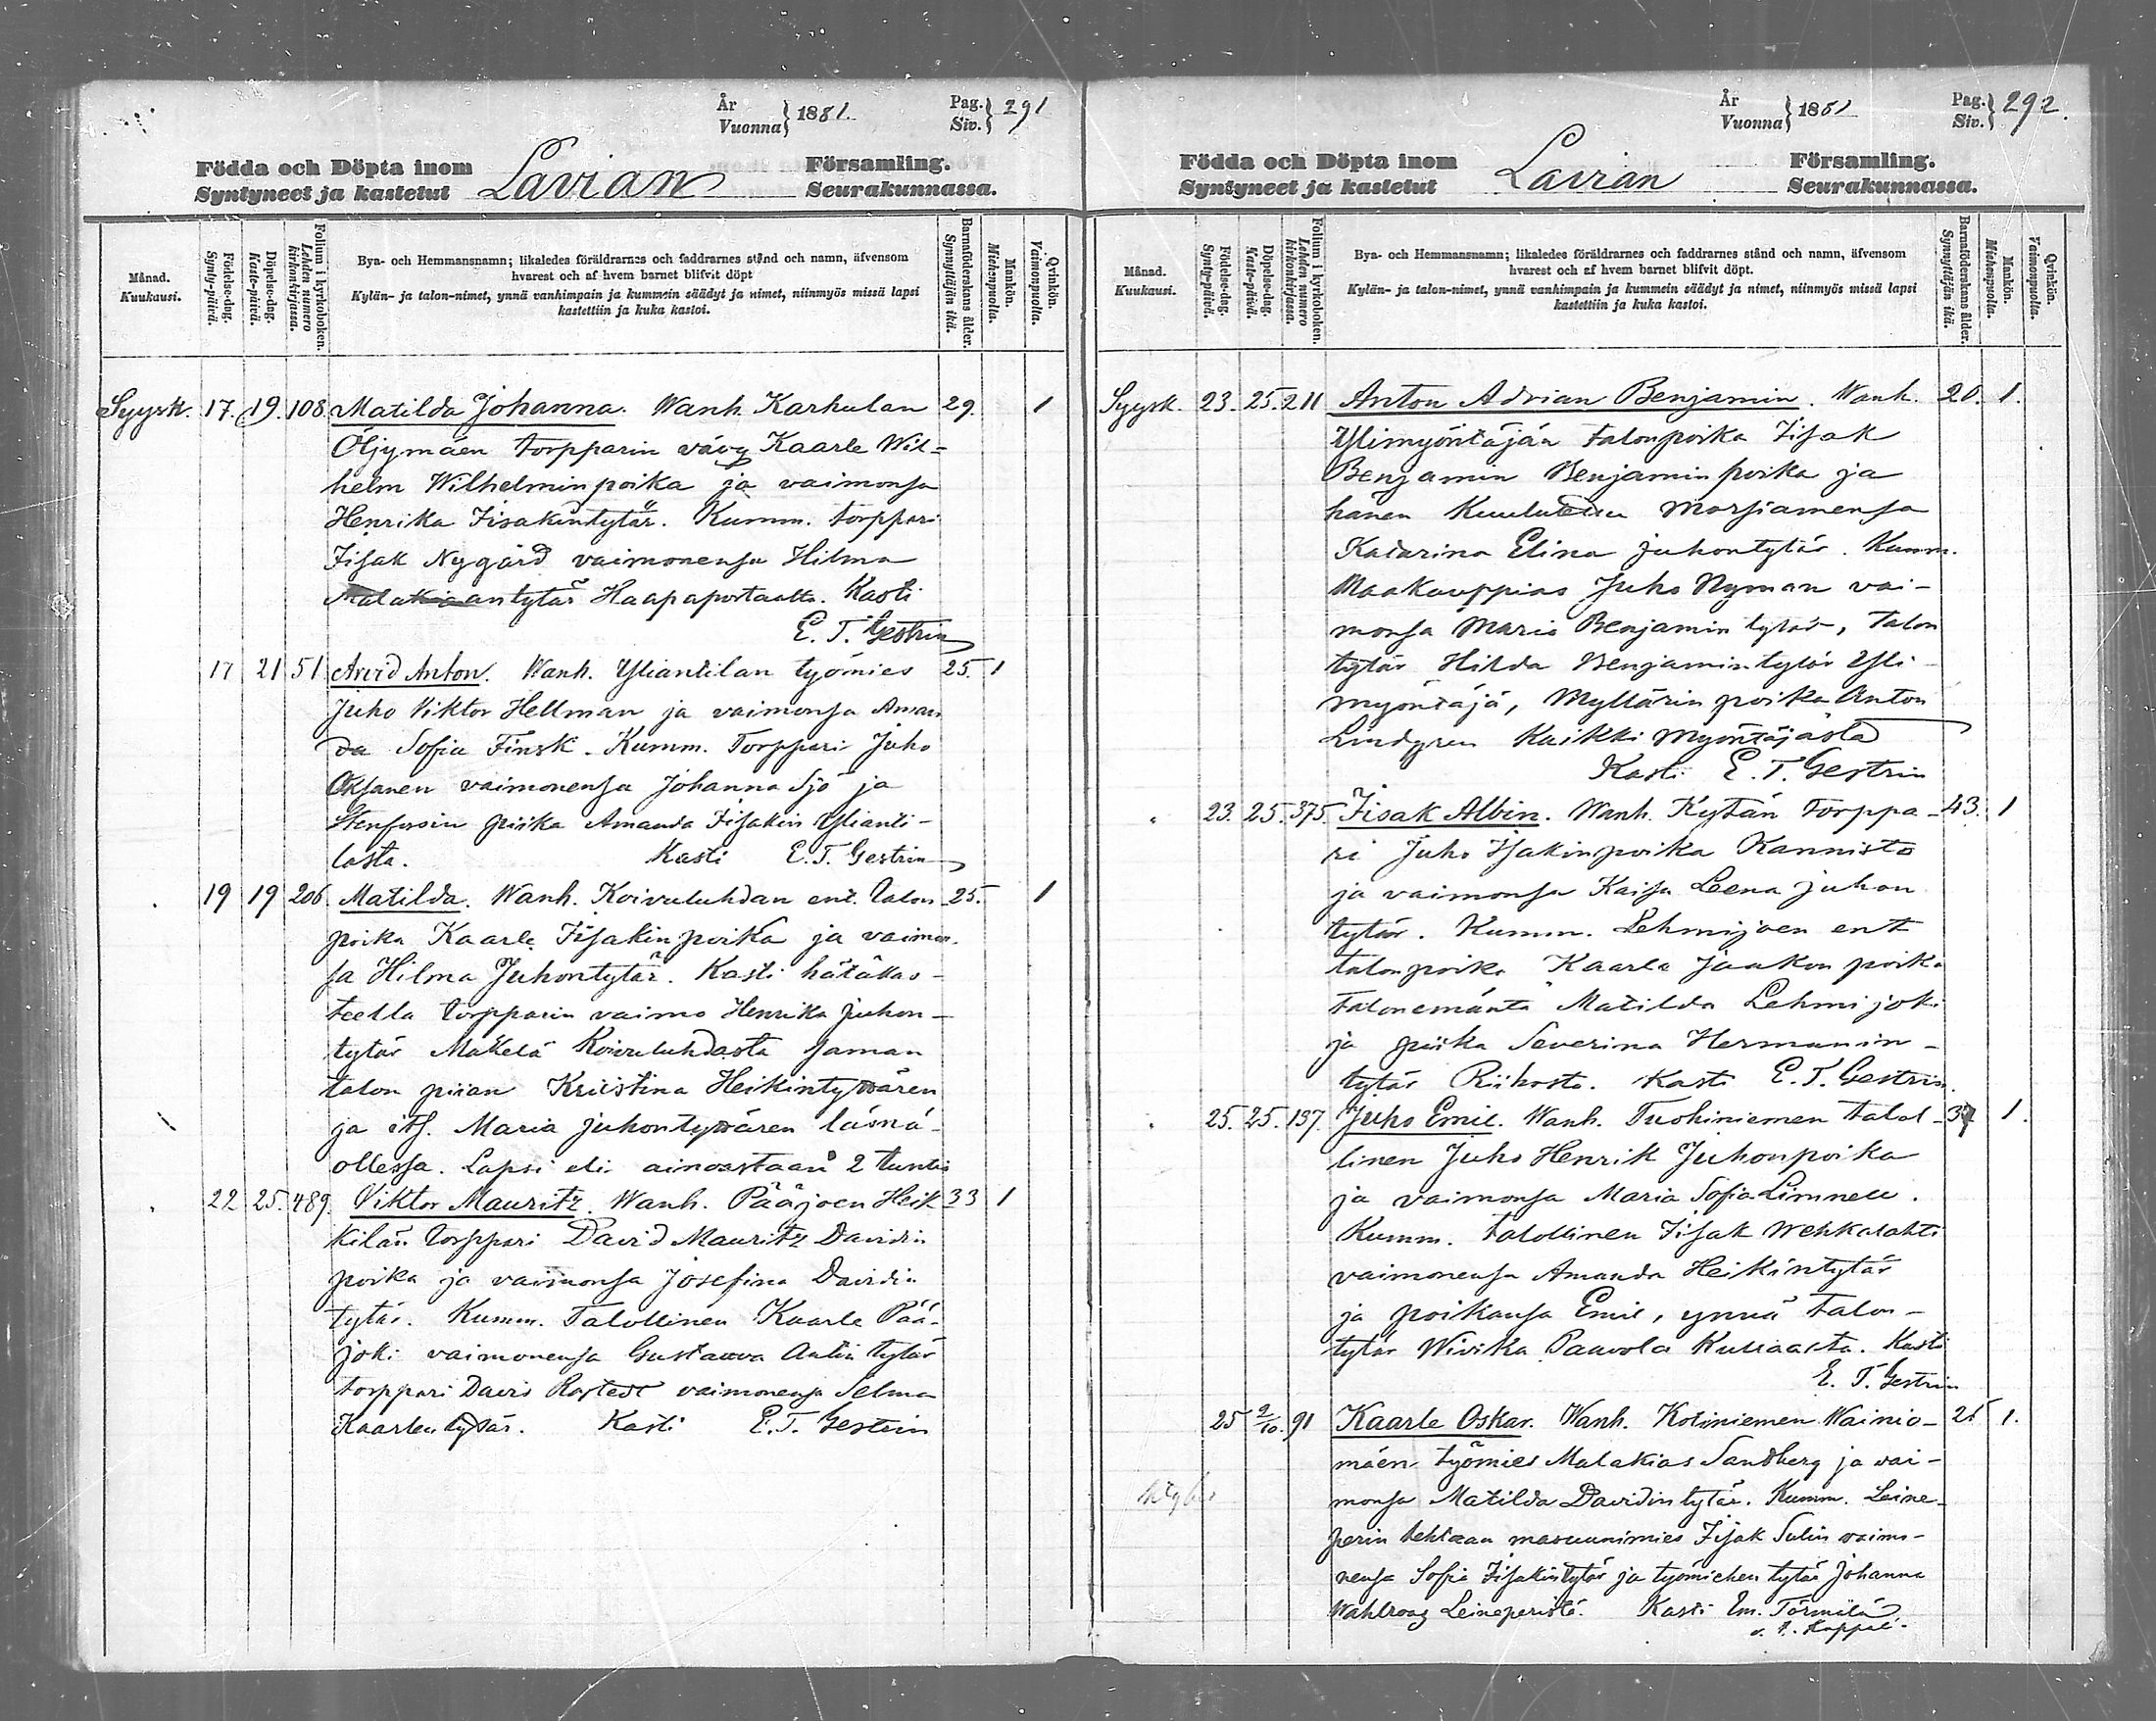 År
Vuonna } 1881.
Pag.
Siv. } 291
Födda och Döpta inom
Syntyneet ja kastetut
Lavian
Församling.
Seurakunnassa.
Månad.
Kuukausi.
Födelse-dag.
Synty-päivä.
Döpelse-dag.
Kaste-päivä.
Folium i kyrkoboken.
Lehden numero kirkonkirjassa.
Bya- och Hemmansnamn; likaledes föräldrarnes och faddrarnes stånd och namn, äfvensom
hvarest och af hvem barnet blifvit döpt
Kylän- ja talon-nimet, ynnä vanhimpain ja kummein säädyt ja nimet, niinmyös missä lapsi
kastettiin ja kuka kastoi.
Barnaföderskans ålder.
Synnyttäjän ikä.
Mankön.
Miehenpuolta.
Qvinkön.
Vaimonpuolta.
Syysk. 17. 19. 108. Matilda Johanna. Wanh. Karhulan 29. 1
Öljymäen torpparin vävy Kaarle Wil=
helm Wilhelminpoika ja vaimonsa
Henrika Iisakintytär. Kumm. torppari
Iisak Nygård vaimonensa Hilma
Malakiaantytär Haapaportaalta. Kasti
E. T. Gestrin
17 21 51 Arvid Anton. Wanh. Yliantilan työmies 25. 1
Juho Viktor Hellman ja vaimonsa Aman
da Sofia Finsk. Kumm. Torppari Juho
Oksanen vaimonensa Johanna Sjö ja
piika Amanda Iisakin Ylianti-
lasta. Kasti E. T. Gestrin
19 19 206. Matilda. Wanh. Koivuluhdan ent. talon 25. 1
poika Kaarle Iisakinpoika ja vaimon-
sa Hilma Juhontytär. Kasti hätäkas-
teella torpparin vaimo Henrika Juhon-
tytär Mäkelä Koivuluhdasta saman
talon piian Kristina Heikintyttären
ja its. Maria Juhontyttären läsnä-
ollessa. Lapsi eli ainoastaan 2 tuntia
22 25. 489. Viktor Mauritz. Wanh. Pääjoen Heik 33 1
kilän torppari David Mauritz Davidin
poika ja vaimonsa Josefina Davidin
tytär. Kumm. Talollinen Kaarle Pää-
joki vaimonensa Gustaava Antin tytär
torppari David Rostedt vaimonensa Selma
Kaarlen tytär. Kasti E. T. Gestrin
År
Vuonna } 1881
Pag.
Siv. } 292.
Födda och Döpta inom
Syntyneet ja kastetut
Lavian
Församling.
Seurakunnassa.
Månad.
Kuukausi.
Födelse-dag.
Synty-päivä.
Döpelse-dag.
Kaste-päivä.
Folium i kyrkoboken.
Lehden numero kirkonkirjassa.
Bya- och Hemmansnamn; likaledes föräldrarnes och faddrarnes stånd och namn, äfvensom
hvarest och af hvem barnet blifvit döpt.
Kylän- ja talon-nimet, ynnä vanhimpain ja kummein säädyt ja nimet, niinmyös missä lapsi
kastettiin ja kuka kastoi.
Barnaföderskans ålder.
Synnyttäjän ikä.
Mankön.
Miehenpuolta.
Qvinkön.
Vaimonpuolta.
Syysk. 23. 25. 211 Anton Adrian Benjamin. Wanh. 20. 1.
Ylimyöntäjän talonpoika Iisak
Benjamin Benjaminpoika ja
hänen kuulutettu morsiamensa
Katarina Elina Juhontytär. Kumm.
Maakauppias Juho Nyman vai-
monsa Maria Benjamin tytär, Talon
tytär Hilda Benjamintytär Yli-
myöntäjä, Myllärin poika Anton
Lindgren Kaikki Myöntäjästä
Kasti E. T. Gestrin
23. 25. 375. Iisak Albin. Wanh. Kytän torppa- 43. 1
ri Juho Isakinpoika Kannisto
ja vaimonsa Kaisa Leena Juhon
tytär. Kumm. Lehmijoen ent
talonpoika Kaarle Jaakon poika
talonemäntä Matilda Lehmijoki
ja piika Severina Hermanin-
tytär Riihosta. Kasti E. T. Gestrin.
25. 25. 137. Juho Emil. Wanh. Tuohiniemen talol- 37 1.
linen Juho Henrik Juhonpoika
ja vaimonsa Maria Sofia Limnell.
Kumm. talollinen Iisak Wehkalahti
vaimonensa Amanda Heikintytär
ja poikansa Emil, ynnä talon-
tytär Wivika Paavola Kullaasta. Kasti
E. T. Gestrin
25 2/10. 91 Kaarle Oskar. Wanh. Kotiniemen Wainio- 25 1.
mäen työmies Malakias Sandberg ja vai-
monsa Matilda Davidintytär. Kumm. Leine-
perin tehtaan masuunimies Iisak Sulin vaimo-
nensa Sofia Iisakintytär ja työmiehen tytär Johanna
Wahlroos Leineperistä. Kasti Em. Törmälä
v. t. Kappal.